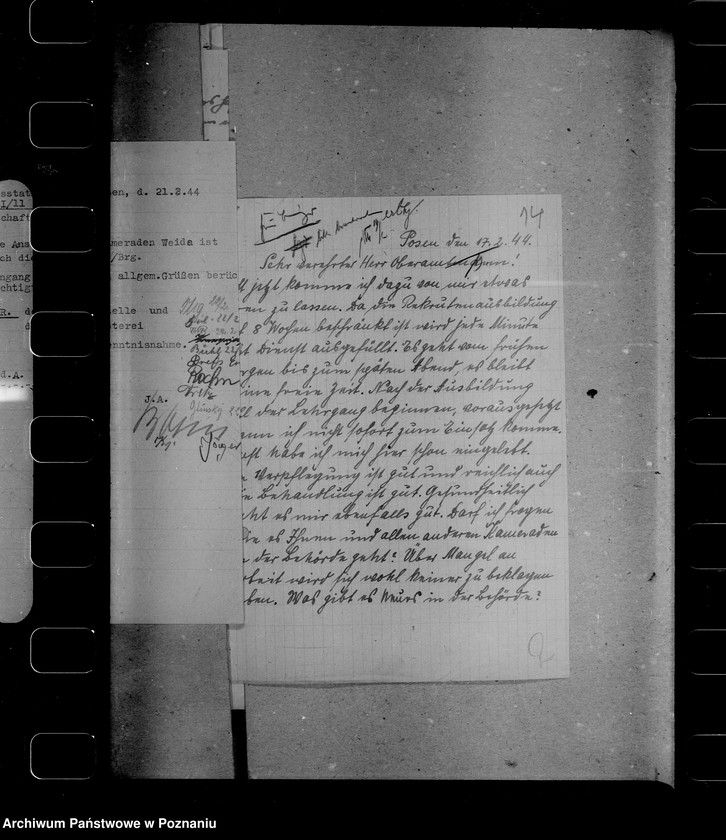 sstat
I/11
chaft
ch die
ngang
chtig
R. de
d
d.A.
en, d. 21.2.44
meraden Weida ist
/Brg.
allgem.Grüßen berüc
elle und
terei
enntnisnahme.
J.A.
Rohm
Jäger
14
Posen den 17.2.44.
Sehr verehrter Herr Oberamtmann!
t jetzt komme ich dazu von mir etwas
ren zu lassen. Da die Rekrutenausbildung
f 8 Wochen beschränkt ist wird jede Minute
t Dienst ausgefüllt. Es geht vom frühen
rgen bis zum späten Abend, es bleibt
ine freie Zeit. Nach der Ausbildung
ll der Lehrgang beginnen, vorausgesetzt
enn ich nicht sofort zum Einsatz komme.
nst habe ich mich hier schon eingelebt.
e Verpflegung ist gut und reichlich auch
e Behandlung ist gut. Gesundheitlich
eht es mir ebenfalls gut. Darf ich fragen
ie es Ihnen und allen anderen Kameraden
n der Behörde geht? Über Mangel an
rbeit wird sich wohl keiner zu beklagen
ben. Was gibt es Neues in der Behörde?
Archiwum Państwowe w Poznaniu